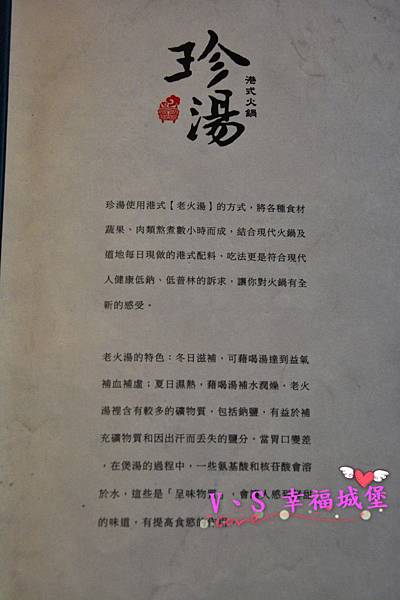 珍湯
港式火鍋
珍湯使用港式【老火湯】的方式，將各種食材
蔬果、肉類熬煮數小時而成，結合現代火鍋及
道地每日現做的港式配料、吃法更是符合現代
人健康低鈉、低普林的訴求，讓你對火鍋有全
新的感受。
老火湯的特色：冬日滋補，可藉喝湯達到益氣
補血補虛；夏日濕熱，藉喝湯補水潤燥。老火
湯裡含有較多的礦物質，包括鈉鹽，有益於補
充礦物質和因出汗而丟失的鹽分。當胃口變差
，在煲湯的過程中，一些氨基酸和核苷酸會溶
於水，這些是「呈味物質」，會
的味道，有提高食慾的
V、S 幸福城堡